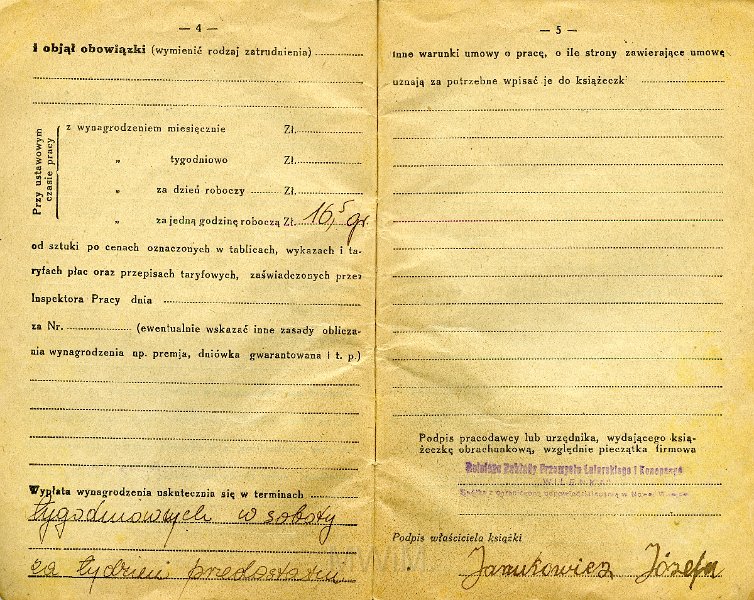 — 4 —
i objął obowiązki (wymienić rodzaj zatrudnienia)
Przy ustawowym
czasie pracy
z wynagrodzeniem miesięcznie Zł.
„ tygodniowo Zł.
„ za dzień roboczy Zł.
„ za jedną godzinę roboczą Zł. 16,5 gr.
od sztuki po cenach oznaczonych w tablicach, wykazach i ta-
ryfach płac oraz przepisach taryfowych, zaświadczonych przez
Inspektora Pracy dnia
za Nr. (ewentualnie wskazać inne zasady oblicza-
nia wynagrodzenia np. premja, dniówka gwarantowana i t. p.)
Wypłata wynagrodzenia uskutecznia się w terminach
tygodniowych w soboty
za tydzień przedostatni.
— 5 —
Inne warunki umowy o pracę, o ile strony zawierające umowę
uznają za potrzebne wpisać je do książeczk
Podpis pracodawcy lub urzędnika, wydającego ksią-
żeczkę obrachunkową, względnie pieczątka firmowa
Zakłady Przemysłu i Konopnego
"WILENKA"
Spółka z ograniczoną odpowiedzialnością w Nowej Wilejce
Podpis właściciela książki
Janukowicz Józefa
MWM